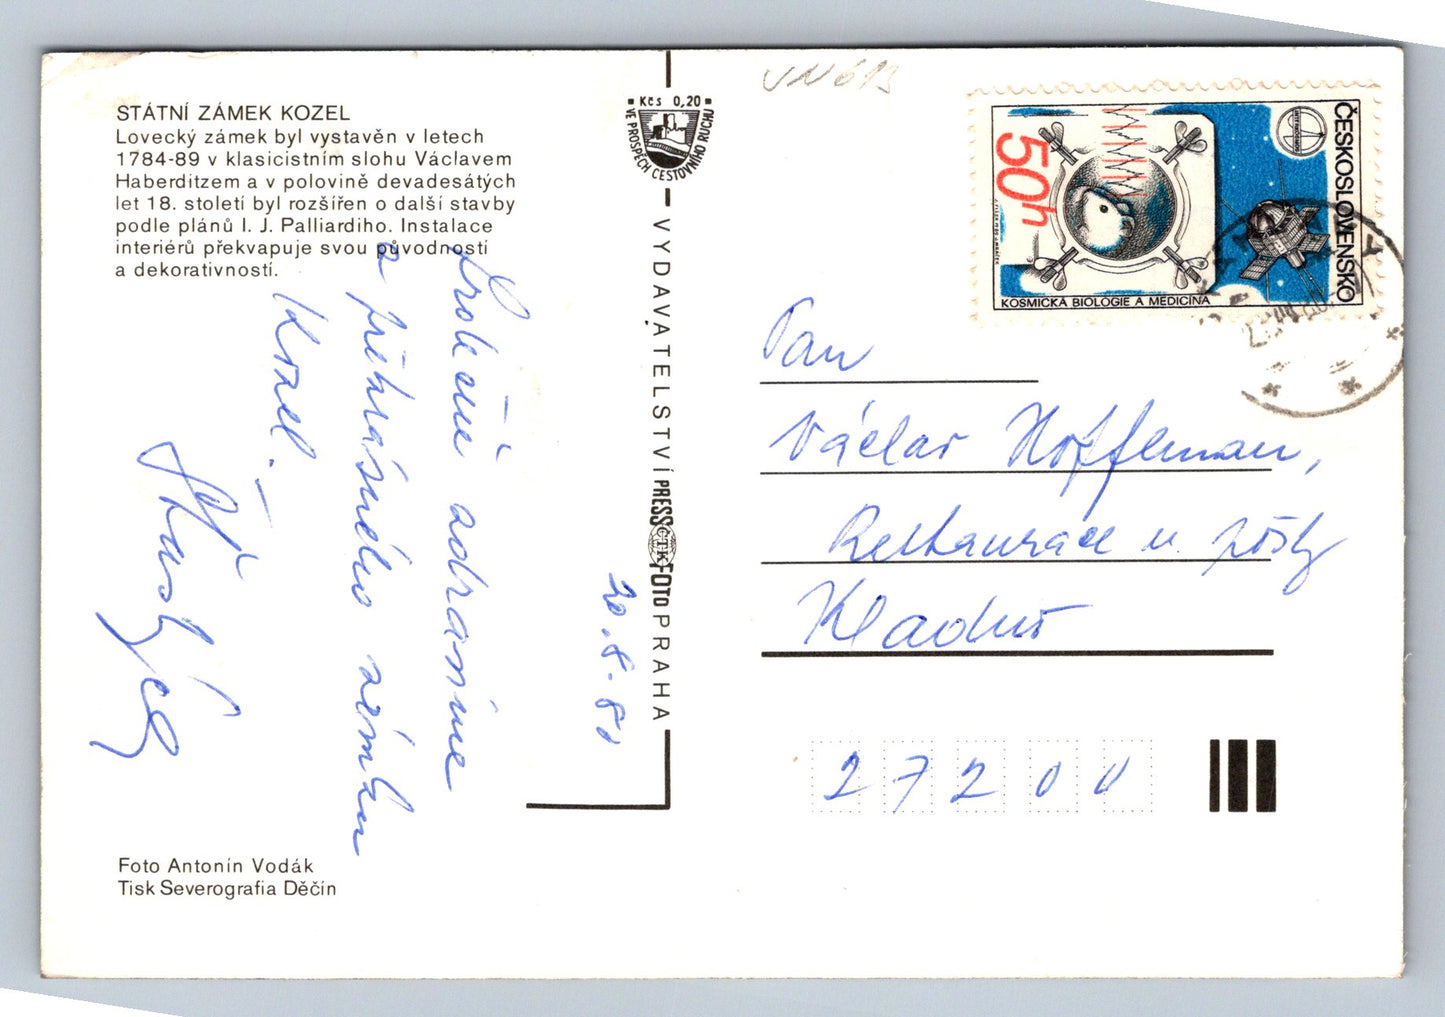 STÁTNÍ ZÁMEK KOZEL
Lovecký zámek byl vystavěn v letech
1784-89 v klasicistním slohu Václavem
Haberditzem a v polovině devadesátých
let 18. století byl rozšířen o další stavby
podle plánů I. J. Palliardiho. Instalace
interiérů překvapuje svou původností
a dekorativností.
Srdečně zdravíme
a překrásného zámku
Kozel. —
20.8.80
Foto Antonín Vodák
Tisk Severografia Děčín
Kčs 0,20
VE PROSPĚCH CESTOVNÍHO RUCHU
VYDAVATELSTVÍ PRESSFOTO PRAHA
ČTK
ČESKOSLOVENSKO
50h
KOSMICKÁ BIOLOGIE A MEDICÍNA
Pan
Václav Hoffman,
Restaurace u pošty
Kladno
27200